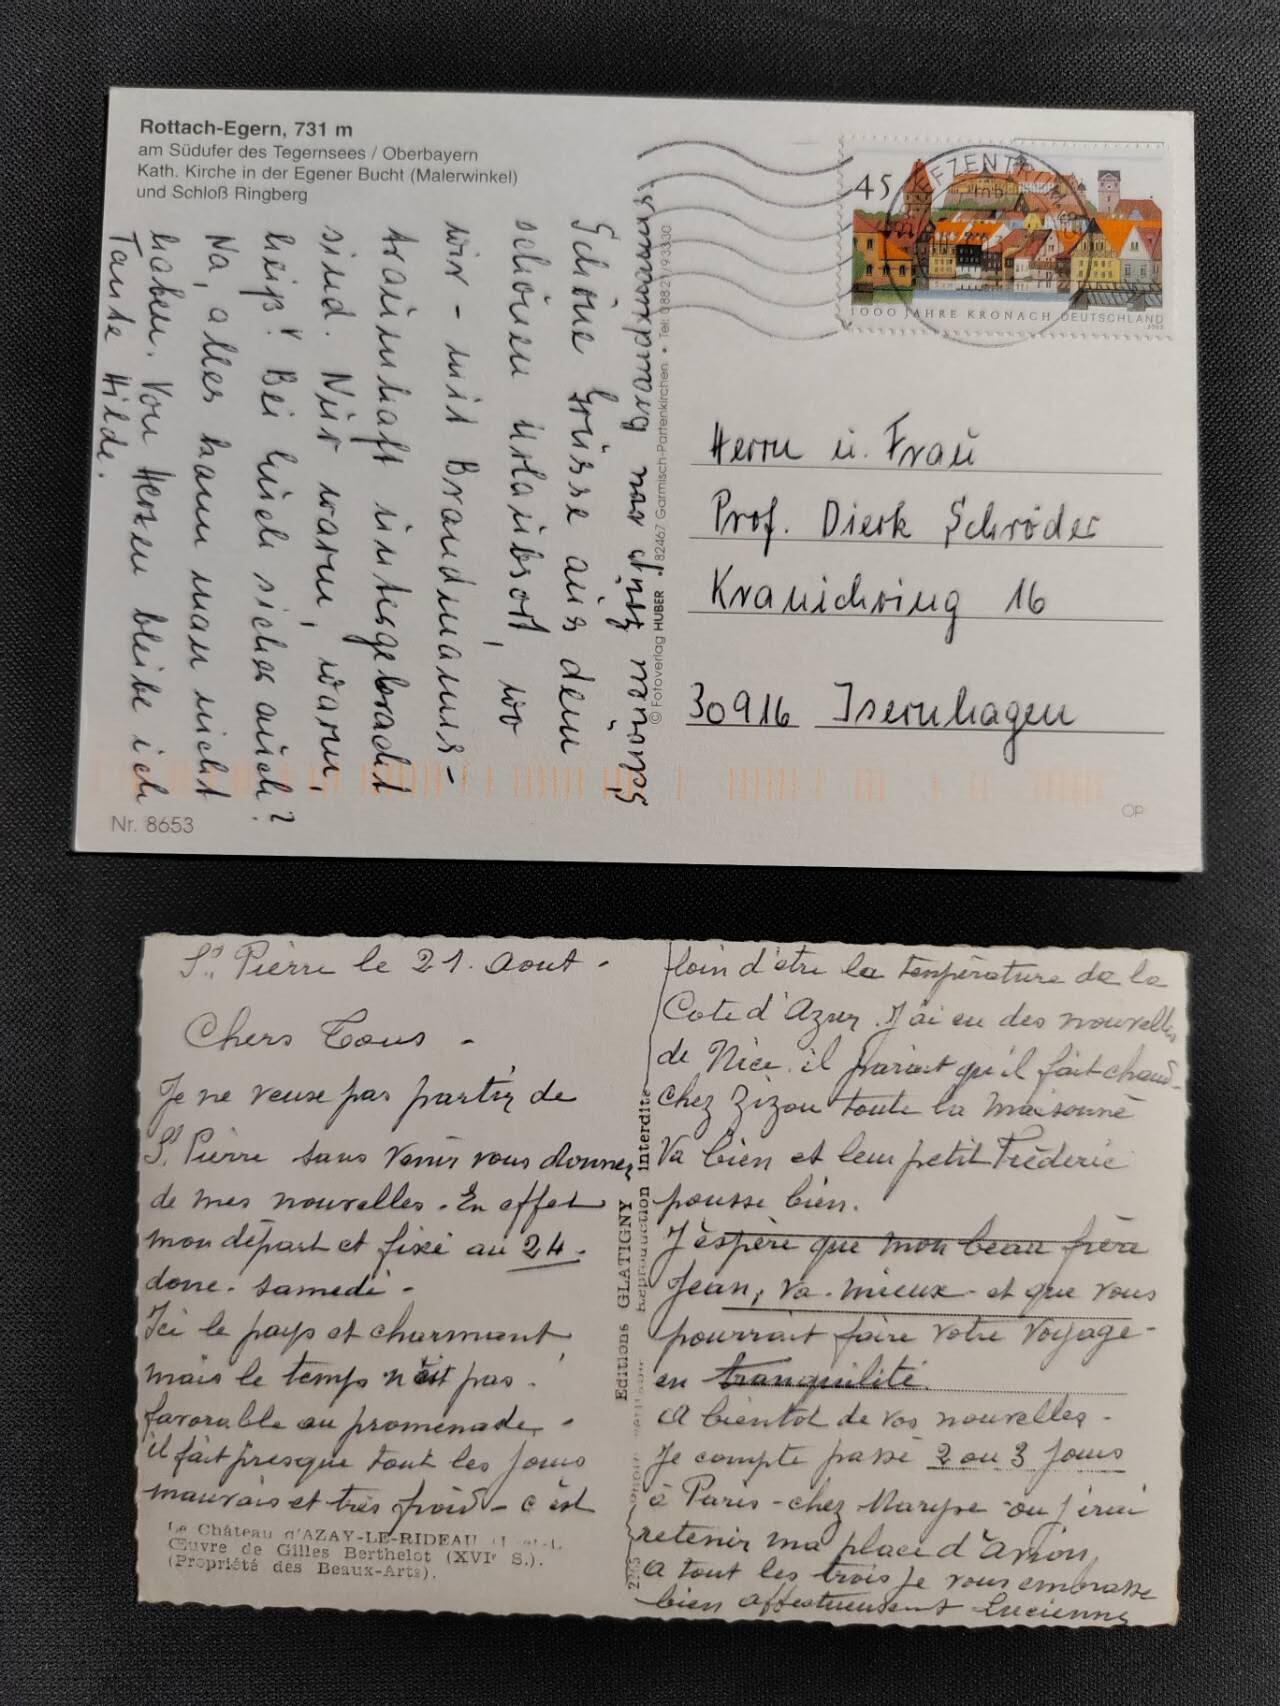 Rottach-Egern, 731 m
am Südufer des Tegernsees / Oberbayern
Kath. Kirche in der Egener Bucht (Malerwinkel)
und Schloß Ringberg
45
1000 JAHRE KRONACH DEUTSCHLAND
Schöne Grüsse aus dem
schönen Urlaubsort, wo
wir - mit Brandmanns -
traumhaft untergebracht
sind. Nur warm, warm,
heiß! Bei Euch sicher auch?
Na, alles kann man nicht
haben. Von Herzen bleibe ich
Tante Hilde.
Schönen Gruß von Brandmanns
© Fotoverlag HUBER • 82467 Garmisch-Partenkirchen • Tel. 08821/93330
Herrn u. Frau
Prof. Dierk Schröder
Kranichring 16
30916 Isernhagen
Nr. 8653
OP
St Pierre le 21. Aout -
Chers Tous -
Je ne veuse pas partir de
St Pierre sans venir vous donner
de mes nouvelles. En effet
mon départ et fixé au 24 -
donc. samedi -
Ici le pays et charmant
mais le temps n'est pas
favorable au promenade -
il fait presque tout les jours
mauvais et très froid - c'est
Le Château d'AZAY-LE-RIDEAU
Œuvre de Gilles Berthelot (XVIe S.).
(Propriété des Beaux-Arts).
Editions GLATIGNY
Reproduction interdite
loin d'etre la température de la
Cote d'Azur. J'ai eu des nouvelles
de Nice. il parait qu'il fait chaud -
chez Zizou toute la maisonné
va bien et leur petit Fréderic
pousse bien.
J'éspère que mon beau frère
Jean, va mieux - et que vous
pourrait faire votre voyage -
en tranquilité.
A bientot de vos nouvelles -
Je compte passé 2 ou 3 jours
à Paris - chez Maryse ou j'irai
retenir ma place d'avion,
A tout les trois je vous embrasse
bien affectueusement Lucienne